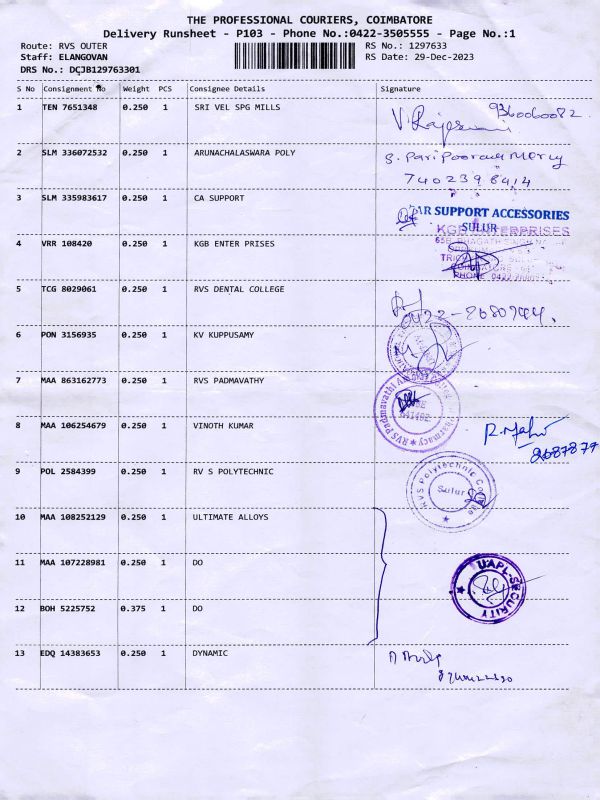 THE PROFESSIONAL COURIERS, COIMBATORE
Delivery Runsheet - P103 - Phone No.:0422-3505555 - Page No.:1
Route: RVS OUTER RS No.: 1297633
Staff: ELANGOVAN RS Date: 29-Dec-2023
DRS No.: DCJB129763301
S No Consignment No Weight PCS Consignee Details Signature
1 TEN 7651348 0.250 1 SRI VEL SPG MILLS 9360060082
2 SLM 336072532 0.250 1 ARUNACHALASWARA POLY
7402398414
3 SLM 335983617 0.250 1 CA SUPPORT
SUPPORT ACCESSORIES
SULUR
4 VRR 108420 0.250 1 KGB ENTER PRISES KGB ENTERPRISES
5 TCG 8029061 0.250 1 RVS DENTAL COLLEGE
6 PON 3156935 0.250 1 KV KUPPUSAMY
7 MAA 863162773 0.250 1 RVS PADMAVATHY RVS Padmavathi
Pharmacy
8 MAA 106254679 0.250 1 VINOTH KUMAR
9 POL 2584399 0.250 1 RV S POLYTECHNIC RVS Polytechnic College
Sulur
10 MAA 108252129 0.250 1 ULTIMATE ALLOYS
11 MAA 107228981 0.250 1 DO UAPL-SECURITY
12 BOH 5225752 0.375 1 DO
13 EDQ 14383653 0.250 1 DYNAMIC